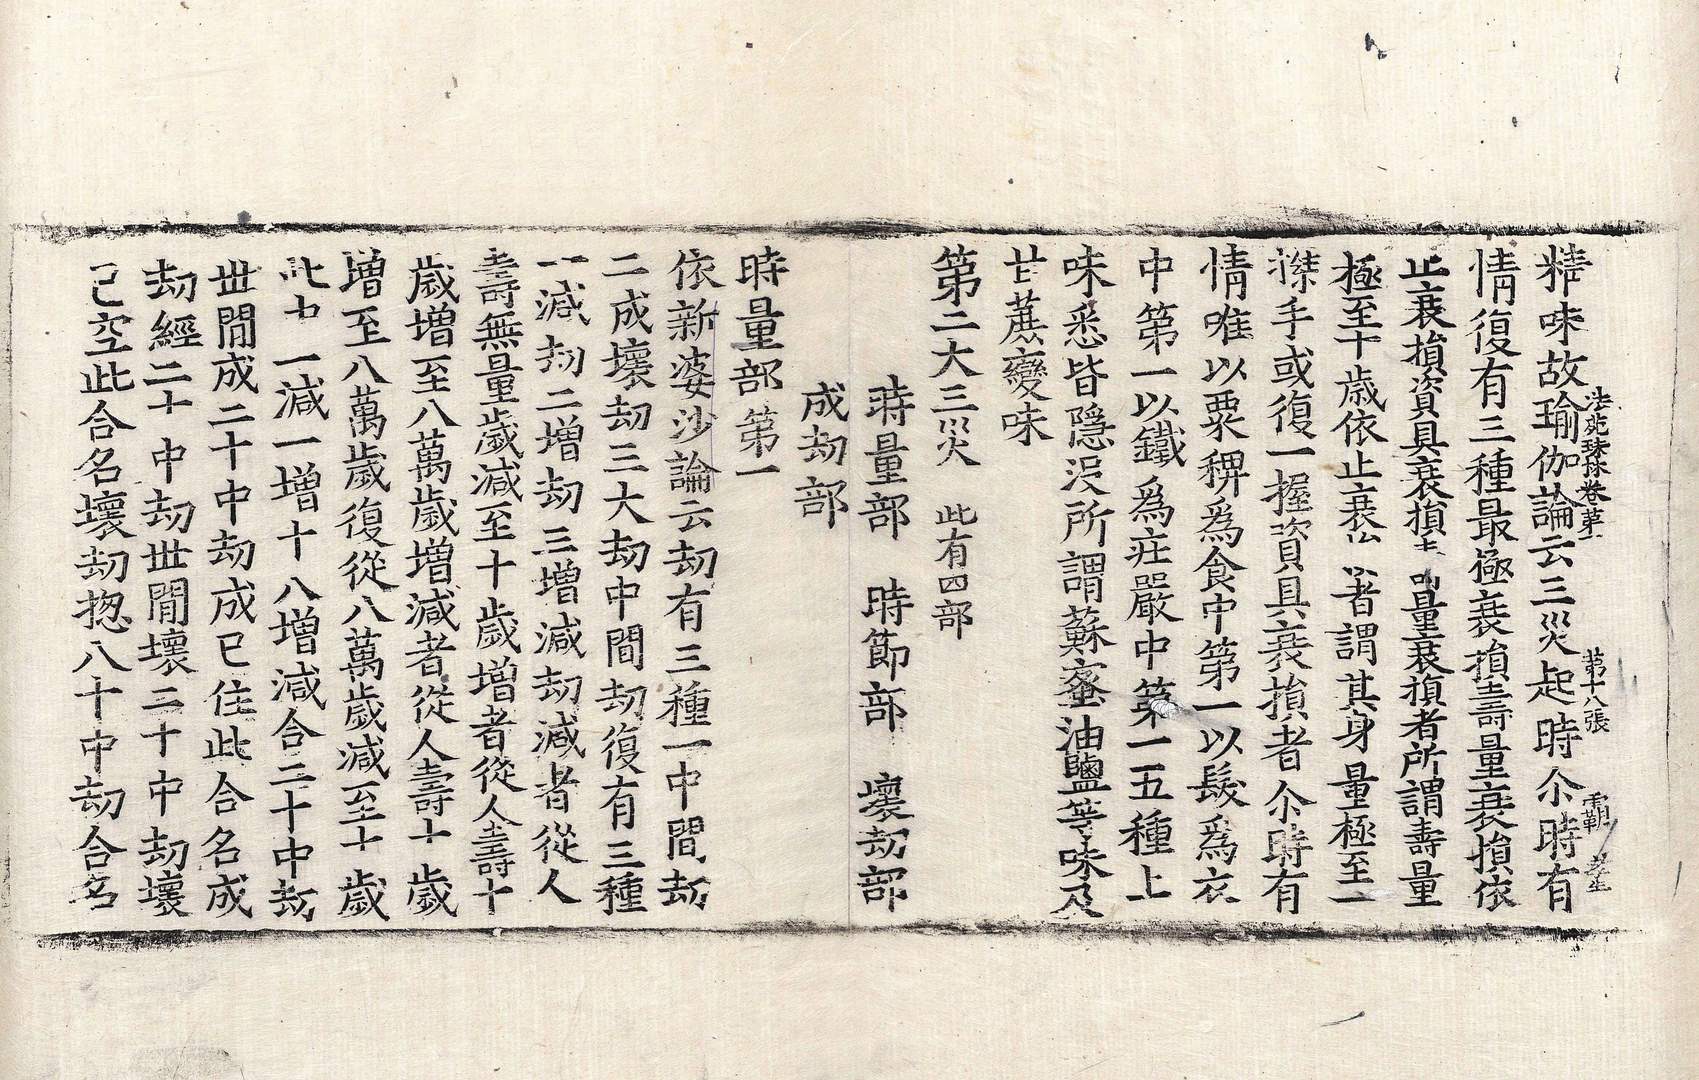 法苑珠林卷第一 第十八張 霸
精味故瑜伽論云三災起時尒時有
情復有三種最極衰損壽量衰損依
止衰損資具衰損壽量衰損者所謂壽量
極至十歲依止衰損者謂其身量極至一
搩手或復一握資具衰損者尒時有
情唯以粟稗爲食中第一以髮爲衣
中第一以鐵爲莊嚴中第一五種上
味悉皆隱沒所謂蘇蜜油鹽等味及
甘蔗變味
第二大三災 此有四部
時量部 時節部 壞劫部
成劫部
時量部第一
依新婆沙論云劫有三種一中間劫
二成壞劫三大劫中間劫復有三種
一減劫二增劫三增減劫減者從人
壽無量歲減至十歲增者從人壽十
歲增至八萬歲增減者從人壽十歲
增至八萬歲復從八萬歲減至十歲
此中一減一增十八增減合二十中劫
世間成二十中劫成已住此合名成
劫經二十中劫世間壞二十中劫壞
已空此合名壞劫揔八十中劫合名